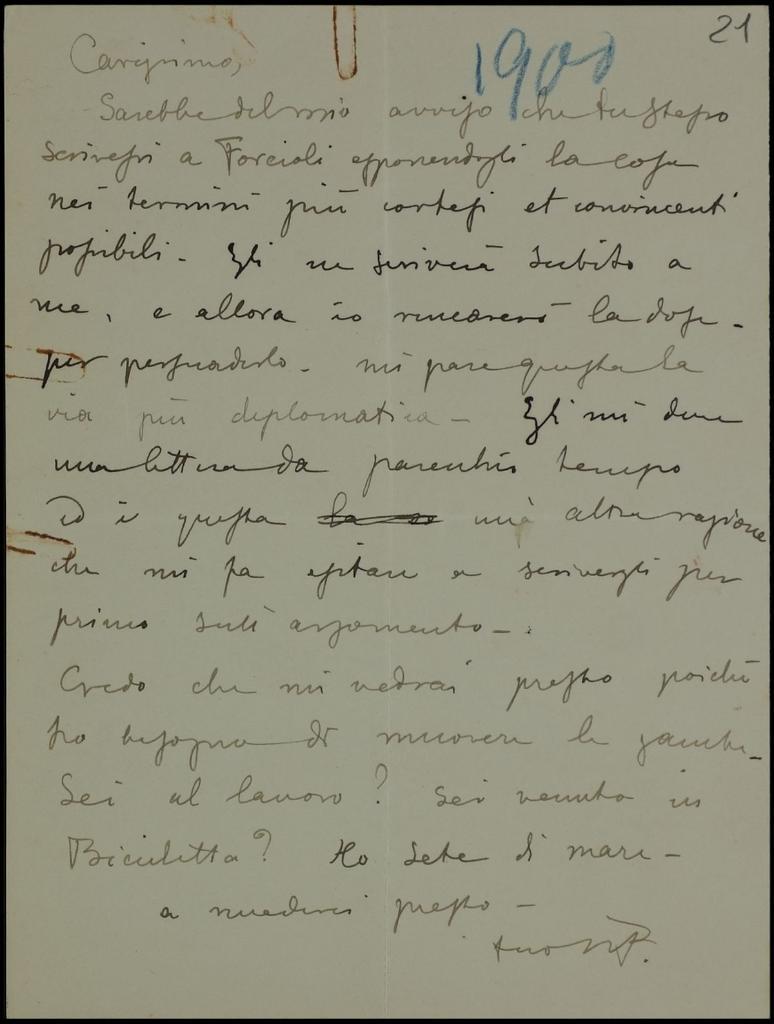 21
1900
Carissimo,
Sarebbe del mio avviso che tu stesso
scrivessi a Forcioli esponendogli la cosa
nei termini più cortesi et convincenti
possibili - Egli ne scriverà subito a
me, e allora io rincarerò la dose -
per persuaderlo - mi pare questa la
via più diplomatica - Egli mi deve
una lettera da parecchio tempo
ed è questa un'altra ragione
che mi fa esitare a scrivergli per
primo sull'argomento -
Credo che mi vedrai presto poichè
ho bisogno di muovere le gambe -
Sei al lavoro? Sei venuto in
Bicicletta? Ho sete di mare -
a rivederci presto -
tuo